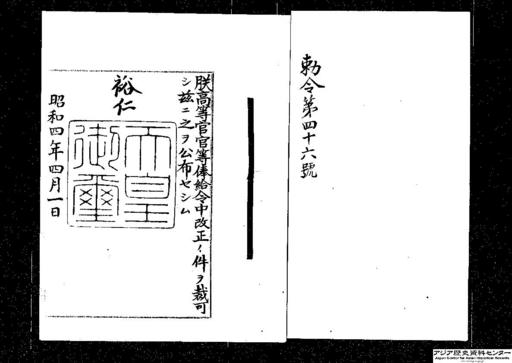 勅令第四十六號
朕高等官官等俸給令中改正ノ件ヲ裁可
シ茲ニ之ヲ公布セシム
裕仁
天皇
御璽
昭和四年四月一日
アジア歴史資料センター
Japan Center for Asian Historical Records